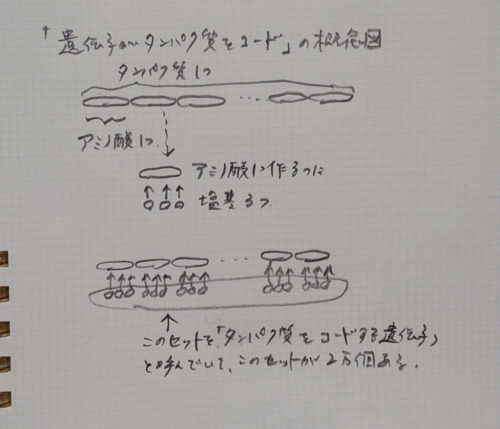 「遺伝子がタンパク質をコード」の概念図
タンパク質1つ
・・・
アミノ酸1つ
アミノ酸1つ作るのに
塩基3つ
・・・
このセットを「タンパク質をコードする遺伝子」
と呼んでいて、このセットが2万個ある。